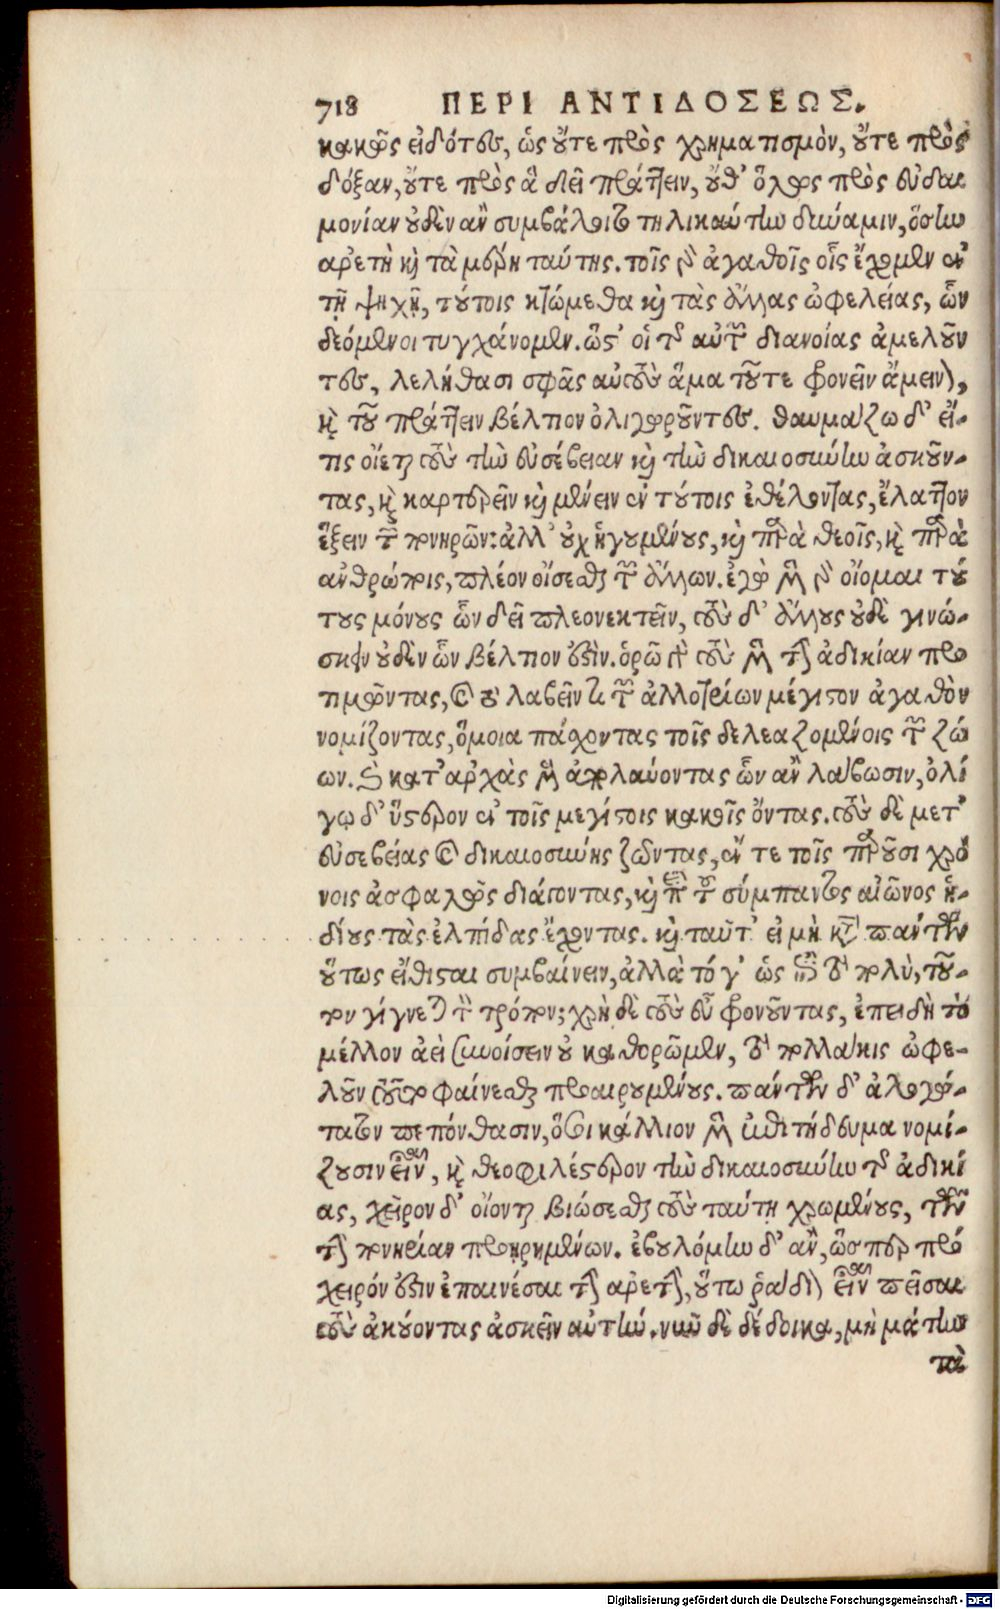 718 ΠΕΡΙ ΑΝΤΙΔΟΣΕΩΣ.
κακῶς εἰδότες, ὡς οὔτε πρὸς χρηματισμὸν, οὔτε πρὸς
δόξαν, οὔτε πρὸς ἃ δεῖ πράττειν, οὔθ' ὅλως πρὸς εὐδαι
μονίαν οὐδὲν ἂν συμβάλοιτο τηλικαύτην δύναμιν, ὅσην
αρετὴ καὶ τὰ μέρη ταύτης. τοῖς γὸ ἀγαθοῖς οἷς ἔχομεν ἐν
τῇ ψυχῇ, τούτοις κτώμεθα καὶ τὰς ἄλλας ὠφελείας, ὧν
δεόμενοι τυγχάνομεν. ὥστ' οἱ τῆς αὑτῶν διανοίας ἀμελοῦν
τες, λελήθασι σφᾶς αὐτοὺς ἅμα τοῦτε φρονεῖν ἄμεινον,
καὶ τοῦ πράττειν βέλτιον ὀλιγωροῦντες. θαυμάζω δ' εἴ-
τις οἴεται τοὺς τὴν εὐσέβειαν καὶ τὴν δικαιοσύνην ἀσκοῦν-
τας, καὶ καρτερεῖν καὶ μένειν ἐν τούτοις ἐθέλοντας, ἔλαττον
ἕξειν τῶν πονηρῶν: ἀλλ' οὐχ ἡγουμένους, καὶ παρὰ θεοῖς, καὶ παρὰ
ανθρώποις, πλέον οἴσεσθαι τῶν ἄλλων. ἐγὼ μὲν γὸ οἴομαι τού
τους μόνους ὧν δεῖ πλεονεκτεῖν, τοὺς δ' ἄλλους οὐδὲ γινώ-
σκειν οὐδὲν ὧν βέλτιον ἐστίν. ὁρῶ γὸ τοὺς μὲν τὴν ἀδικίαν προ
τιμῶντας, καὶ τὸ λαβεῖν τι τῶν ἀλλοτρίων μέγιστον ἀγαθὸν
νομίζοντας, ὅμοια πάσχοντας τοῖς δελεαζομένοις τῶν ζώ
ων. καὶ κατ' αρχὰς μὲν ἀπολαύοντας ὧν ἂν λάβωσιν, ὀλί
γῳ δ' ὕστερον ἐν τοῖς μεγίστοις κακοῖς ὄντας. τοὺς δὲ μετ'
εὐσεβείας καὶ δικαιοσύνης ζῶντας, ἔν τε τοῖς παροῦσι χρό
νοις ἀσφαλῶς διάγοντας, καὶ περὶ τοῦ σύμπαντος αἰῶνος ἡ-
δίους τὰς ἐλπίδας ἔχοντας. καὶ ταῦτ' εἰ μὴ κατὰ πάντων
οὕτως εἴθισται συμβαίνειν, ἀλλὰ τό γ' ὡς ἐπὶ τὸ πολὺ, τοῦ-
τον γίγνεται τὸν τρόπον; χρὴ δὲ τοὺς εὖ φρονοῦντας, ἐπειδὴ τὸ
μέλλον ἀεὶ συνοίσειν οὐ καθορῶμεν, τὸ πολλάκις ὠφε-
λοῦν τοῦτο φαίνεσθαι προαιρουμένους. πάντων δ' ἀλογώ-
τατον πεπόνθασιν, ὅσοι κάλλιον μὲν ἐπιτήδευμα νομί-
ζουσιν εἶναι, καὶ θεοφιλέστερον τὴν δικαιοσύνην τῆς ἀδικί
ας, χεῖρον δ' οἴονται βιώσεσθαι τοὺς ταύτῃ χρωμένους, τῶν
τὴν πονηρίαν προῃρημένων. ἐβουλόμην δ' ἂν, ὥσπερ πρό
χειρόν ἐστιν ἐπαινέσαι τὴν αρετὴν, οὕτω ῥᾴδιον εἶναι πεῖσαι
τοὺς ἀκούοντας ἀσκεῖν αὐτήν. νῦν δὲ δέδοικα, μὴ μάτην
τὰ
Digitalisierung gefördert durch die Deutsche Forschungsgemeinschaft - DFG